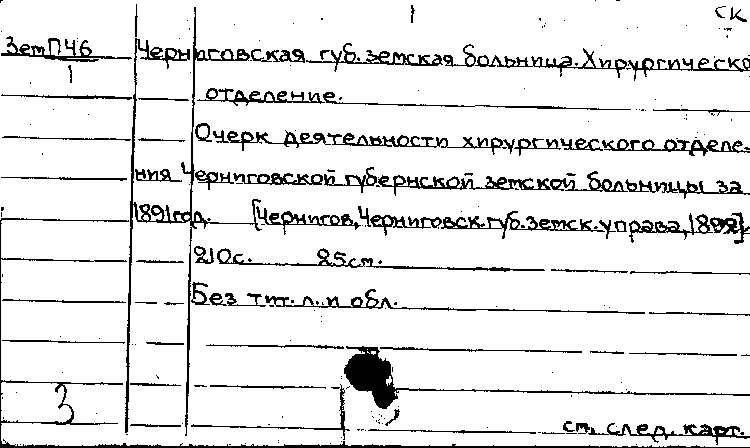 1 СК
ЗемП46 Черниговская губ. земская больница. Хирургическо
1 отделение.
Очерк деятельности хирургического отделе-
ния Черниговской губернской земской больницы за
1891 год. [Чернигов, Черниговск. губ. земск. управа, 1892].
210с. 25см.
Без тит. л. и обл.
3
см. след. карт.